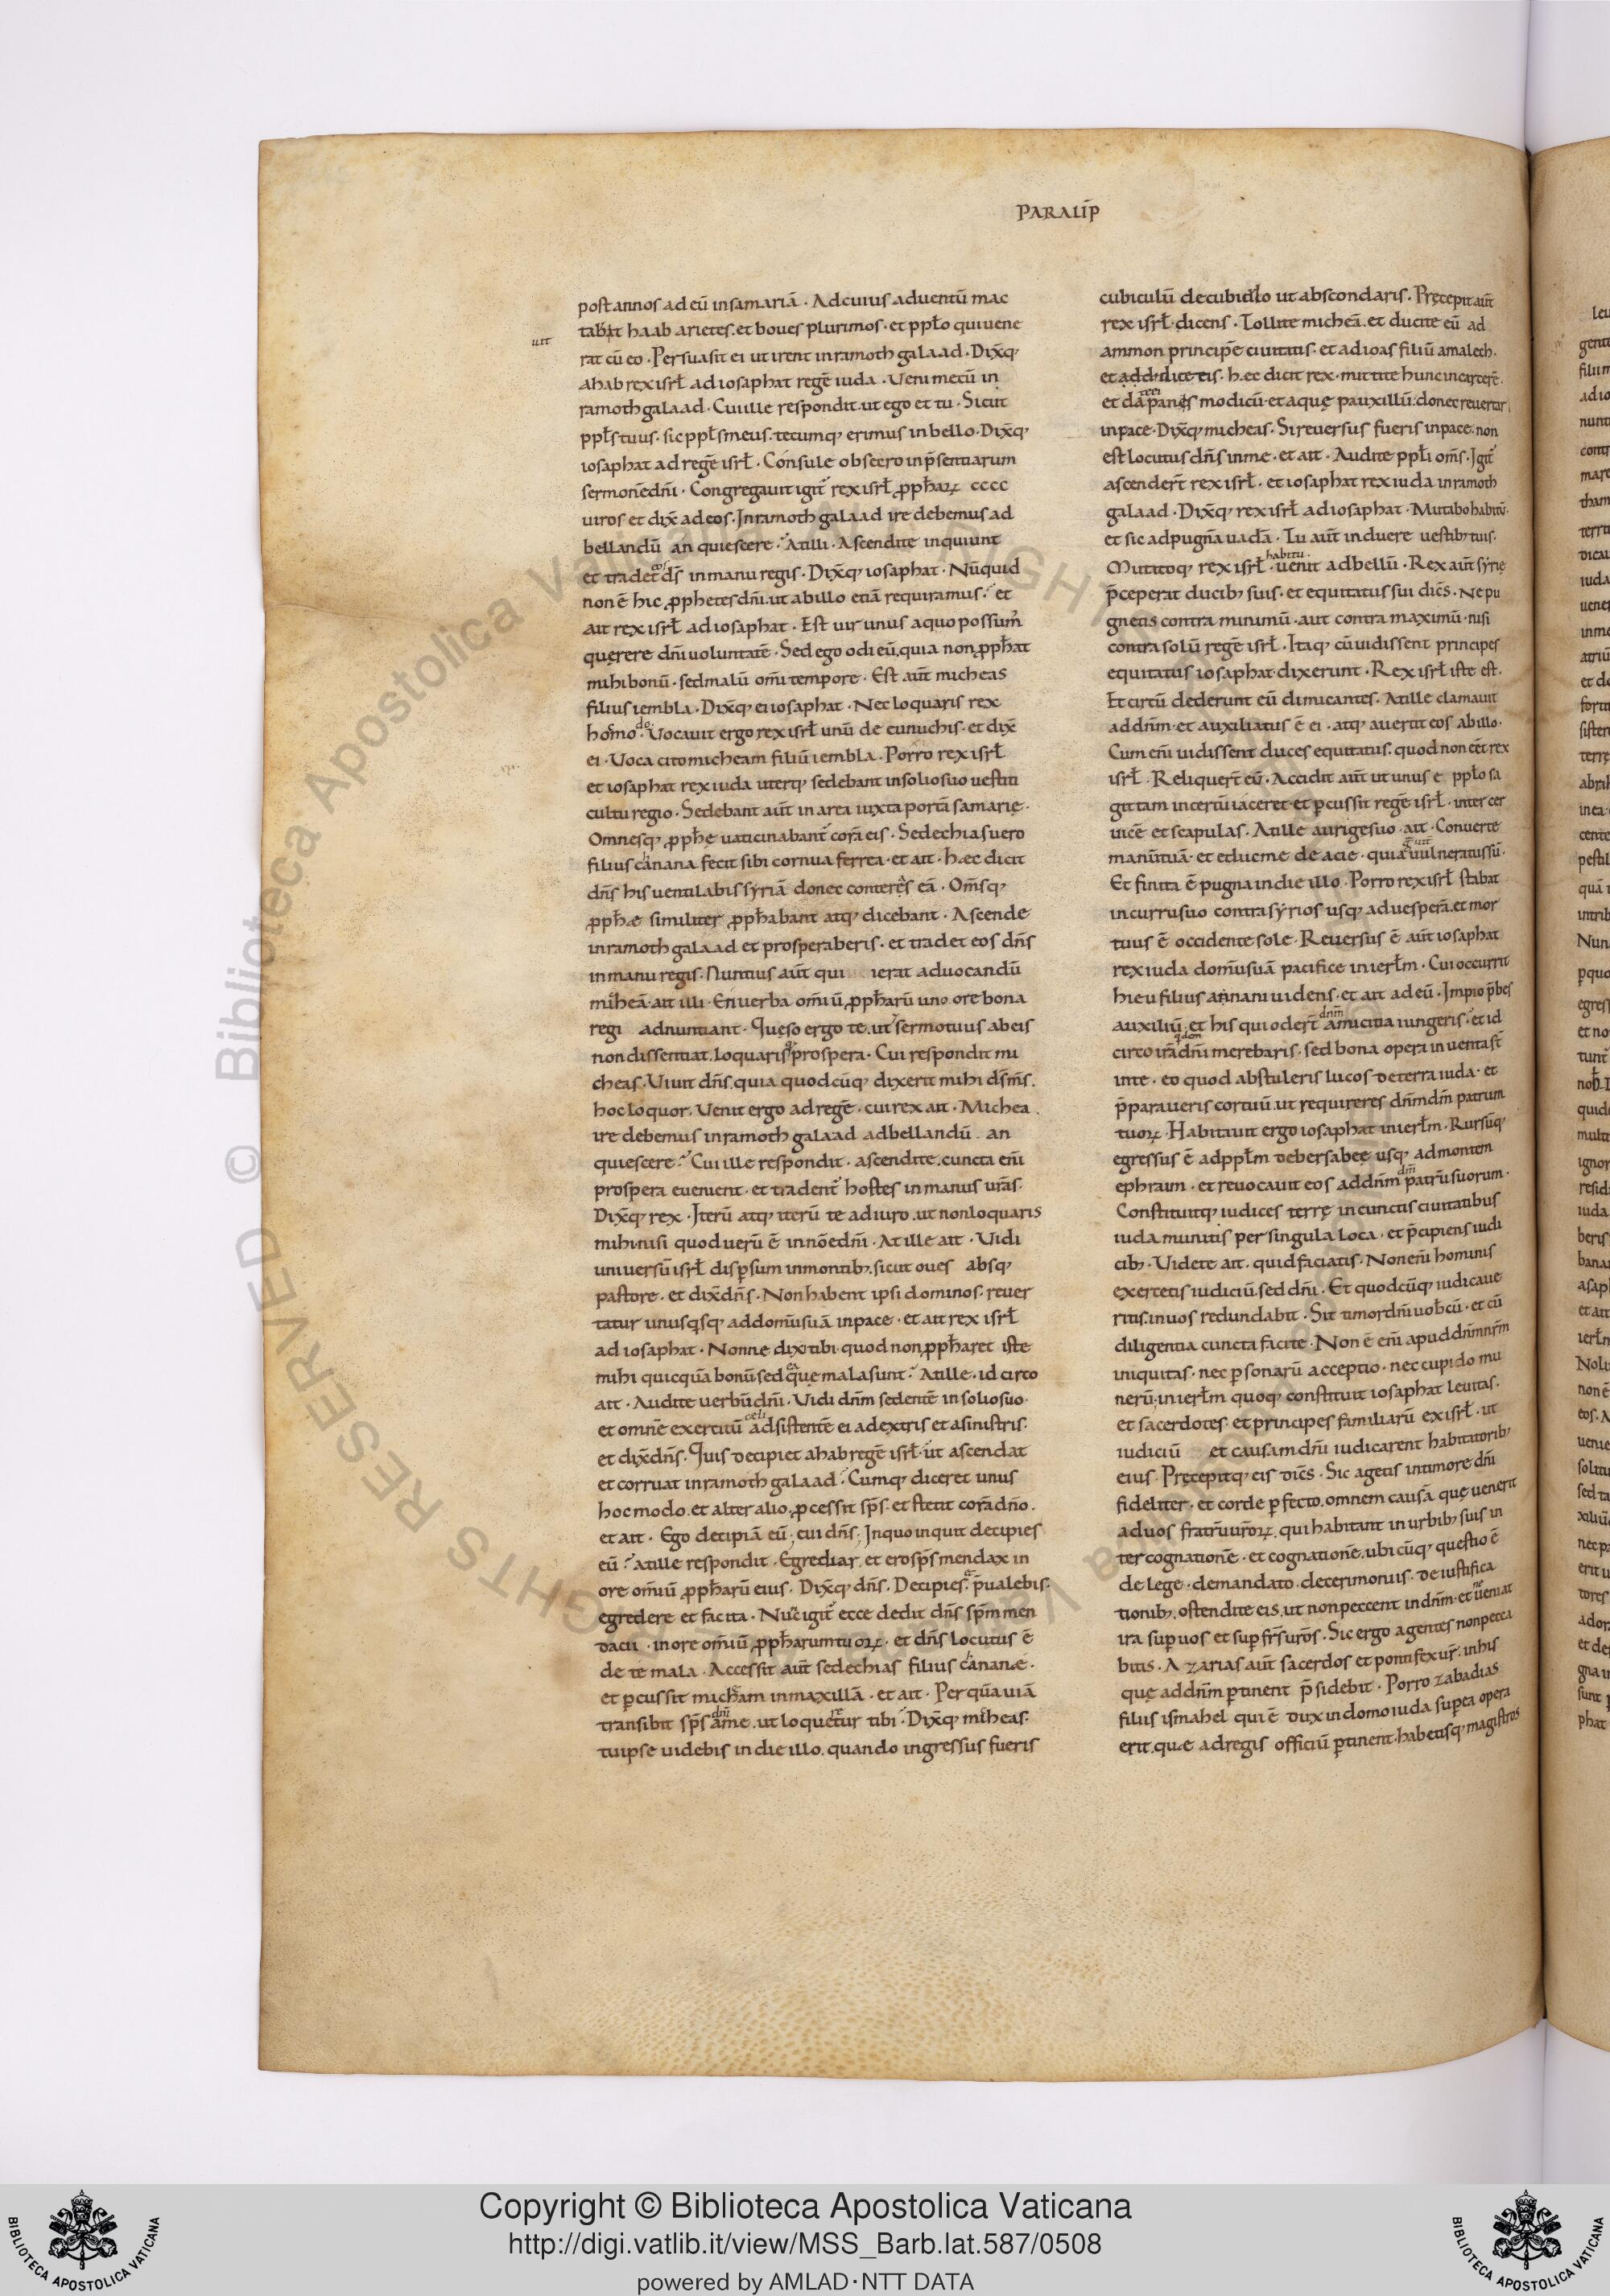 PARALIP̄
post annos ad eū in samariā · Ad cuius aduentū mac
tabit haab arietes. et boues plurimos · et ppło qui uene
uit
rat cū eo · Persuasit ei ut irent in ramoth galaad · Dix̄q;
ahab rex isrł ad iosaphat regē iuda · Ueni mecū in
ramoth galaad · Cui ille respondit. ut ego et tu · Sicut
ppłs tuus · sic ppłs meus. tecumq; erimus in bello · Dix̄q;
iosaphat ad regē isrł · Consule obsecro in p̄sentiarum
sermonē dn̄i · Congregauit igit̄ rex isrł ꝓpħaꝝ cccc
uiros et dix̄ ad eos · In ramoth galaad ire debemus ad
bellandū an quiescere? At illi · Ascendite inquiunt
et tradet eos d̄s in manu regis · Dix̄q; iosaphat · Nūquid
non ē hic ꝓphetes dn̄i. ut ab illo etiā requiramus? et
ait rex isrł ad iosaphat · Est uir unus a quo possum̄
querere dn̄i uoluntatē · Sed ego odi eū. quia non ꝓpħat
mihi bonū · sed malū om̄i tempore · Est aūt micheas
filius iembla · Dix̄q; ei iosaphat · Nec loquaris rex
ho modo · Uocauit ergo rex isrł unū de eunuchis · et dix̄
ei · Uoca cito micheam filiū iembla · Porro rex isrł
et iosaphat rex iuda uterq; sedebant in solio suo uestiti
cultu regio · Sedebant aūt in area iuxta portā samarię ·
Omnesq; ꝓpħe uaticinabant̄ corā eis · Sedechias uero
filius chanana fecit sibi cornua ferrea · et ait · hæc dicit
dn̄s his uentilabis syriā donec conteres eā · Om̄sq;
ꝓpħæ similiter ꝓpħabant atq; dicebant · Ascende
in ramoth galaad et prosperaberis · et tradet eos dn̄s
in manu regis · Nuntius aūt qui ierat ad uocandū
micheā · ait illi · En uerba om̄iū ꝓpħarū uno ore bona
regi adnuntiant · Queso ergo te. ut sermo tuus ab eis
non dissentiat. loquarisq; prospera · Cui respondit mi
cheas · Uiuit dn̄s. quia quodcūq; dixerit mihi d̄s m̄s.
hoc loquor. Uenit ergo ad regē · cui rex ait · Michea.
ire debemus in ramoth galaad ad bellandū an
quiescere? Cui ille respondit · ascendite. cuncta en̄i
prospera euenient · et tradent̄ hostes in manus ur̄as·
Dix̄q; rex · Iterū atq; iterū te adiuro. ut non loquaris
mihi nisi quod uerū ē in nōe dn̄i · At ille ait · Uidi
uniuersū isrł dispersum in montib;. sicut oues absq;
pastore · et dix̄ dn̄s · Non habent ipsi dominos. reuer
tatur unusq̇sq; ad domū suā in pace · et ait rex isrł
ad iosaphat · Nonne dixi tibi quod non ꝓpħaret iste
mihi quicquā bonū sed ea que mala sunt? At ille · id circo
ait · Audite uerbū dn̄i · Uidi dn̄m sedentē in solio suo·
et omnē exercitū celi adsistentē ei a dextris et a sinistris·
et dix̄ dn̄s. Quis decipiet ahab regē isrł · ut ascendat
et corruat in ramoth galaad? Cumq; diceret unus
hoc modo. et alter alio. ꝓcessit sp̄s. et stetit corā dn̄o.
et ait · Ego decipiā eū; cui dn̄s; In quo inquit decipies
eū? at ille respondit · Egrediar. et ero sp̄s mendax in
ore om̄iū ꝓpħarū eius · Dix̄q; dn̄s · Decipies. et p̄ualebis·
egredere et fac ita · Nunc igit̄ ecce dedit dn̄s sp̄m men
dacii · in ore om̄iū ꝓpħarum tuoꝝ · et dn̄s locutus ē
de te mala · Accessit aūt sedechias filius chananæ ·
et ꝑcussit micheam in maxillā · et ait · Per quā uiā
transibit sp̄s dn̄i a me. ut loqueretur tibi? Dix̄q; micheas·
tu ipse uidebis in die illo. quando ingressus fueris
cubiculū de cubiculo ut abscondaris · Pręcepit aūt
rex isrł dicens · Tollite micheā. et ducite eū ad
ammon principē ciuitatis · et ad ioas filiū amalech.
et addidite eis. hæc dicit rex · mittite hunc in carcerē.
et date ei panes modicū · et aquę pauxillū. donec reuertar
in pace · Dix̄q; micheas · Si reuersus fueris in pace. non
est locutus dn̄s in me · et ait · Audite ppłi om̄s · Igit̄
ascendert̄ rex isrł · et iosaphat rex iuda in ramoth
galaad · Dix̄q; rex isrł ad iosaphat · Mutabo habitū·
et sic ad pugnā uadā · Tu aūt induere uestib; tuis·
Mutatoq; rex isrł habitu · uenit ad bellū · Rex aūt syrię
p̄ceperat ducib; suis · et equitatus sui dic̄s · Ne pu
gnetis contra minimū · aut contra maximū · nisi
contra solū regē isrł · Itaq; cū uidissent principes
equitatus iosaphat · dixerunt · Rex isrł iste est ·
Et circū dederunt eū dimicantes · At ille clamauit
ad dn̄m · et auxiliatus ē ei · atq; auertit eos ab illo·
Cum en̄i uidissent duces equitatus. quod non eēt rex
isrł · Reliquert̄ eū · Accidit aūt ut unus e ppło sa
gittam in certū iaceret · et ꝑcussit regē isrł · inter cer
uicē et scapulas · At ille aurige suo · ait · Conuerte
manū tuā · et educ me de acie · quia uulneratus sū·
Et finita ē pugna in die illo · Porro rex isrł stabat
in curru suo contra syrios usq; ad uesperā. et mor
tuus ē occidente sole · Reuersus ē aūt iosaphat
rex iuda domū suā pacifice in ierłm · Cui occurrit
hieu filius annani uidens · et ait ad eū · Impio p̄bes
auxiliū. et his qui odert̄ dn̄m amicitia iungeris? et id
circo irā qdem dn̄i merebaris · sed bona opera inuenta st̄
in te · eo quod abstuleris lucos de terra iuda · et
p̄paraueris cor tuū. ut requireres dn̄m dm̄ patrum
tuoꝝ · Habitauit ergo iosaphat in ierłm · Rursūq;
egressus ē ad ppłm de bersabeę usq; ad montem
ephraim · et reuocauit eos ad dn̄m dm̄ patrū suorum ·
Constituitq; iudices terrę in cunctis ciuitatibus
iuda munitis per singula loca · et p̄cipiens iudi
cib; · Uidete ait. quid faciatis · Non en̄i hominis
exercetis iudiciū. sed dn̄i · Et quodcūq; iudicaue
ritis. in uos redundabit · Sit timor dn̄i uob̄cū · et cū
diligentia cuncta facite · Non ē en̄i apud dn̄m nr̄m
iniquitas · nec ꝑsonarū acceptio · nec cupido mu
nerū; in ierłm quoq; constituit iosaphat leuitas·
et sacerdotes · et principes familiarū ex isrł · ut
iudiciū et causam dn̄i iudicarent habitatorib;
eius · Pręcepitq; eis dic̄s · Sic agetis in timore dn̄i
fideliter · et corde ꝑfecto. omnem causā que uenerit
ad uos fratrū ur̄oꝝ. qui habitant in urbib; suis in
ter cognationē · et cognationē. ubicūq; questio ē
de lege · de mandato. de cerimoniis · de iustifica
tionib;. ostendite eis. ut non peccent in dn̄m · et ne ueniat
ira suꝑ uos et suꝑ fr̄s ur̄os · Sic ergo agentes non pecca
bitis · Azarias aūt sacerdos et pontifex ur̄. in his
quę ad dn̄m ꝑtinent p̄sidebit · Porro zabadias
filius ismahel qui ē dux in domo iuda suꝑ ea opera
erit. quæ ad regis officiū ꝑtinent · habetisq; magistros
Copyright © Biblioteca Apostolica Vaticana
http://digi.vatlib.it/view/MSS_Barb.lat.587/0508
powered by AMLAD·NTT DATA